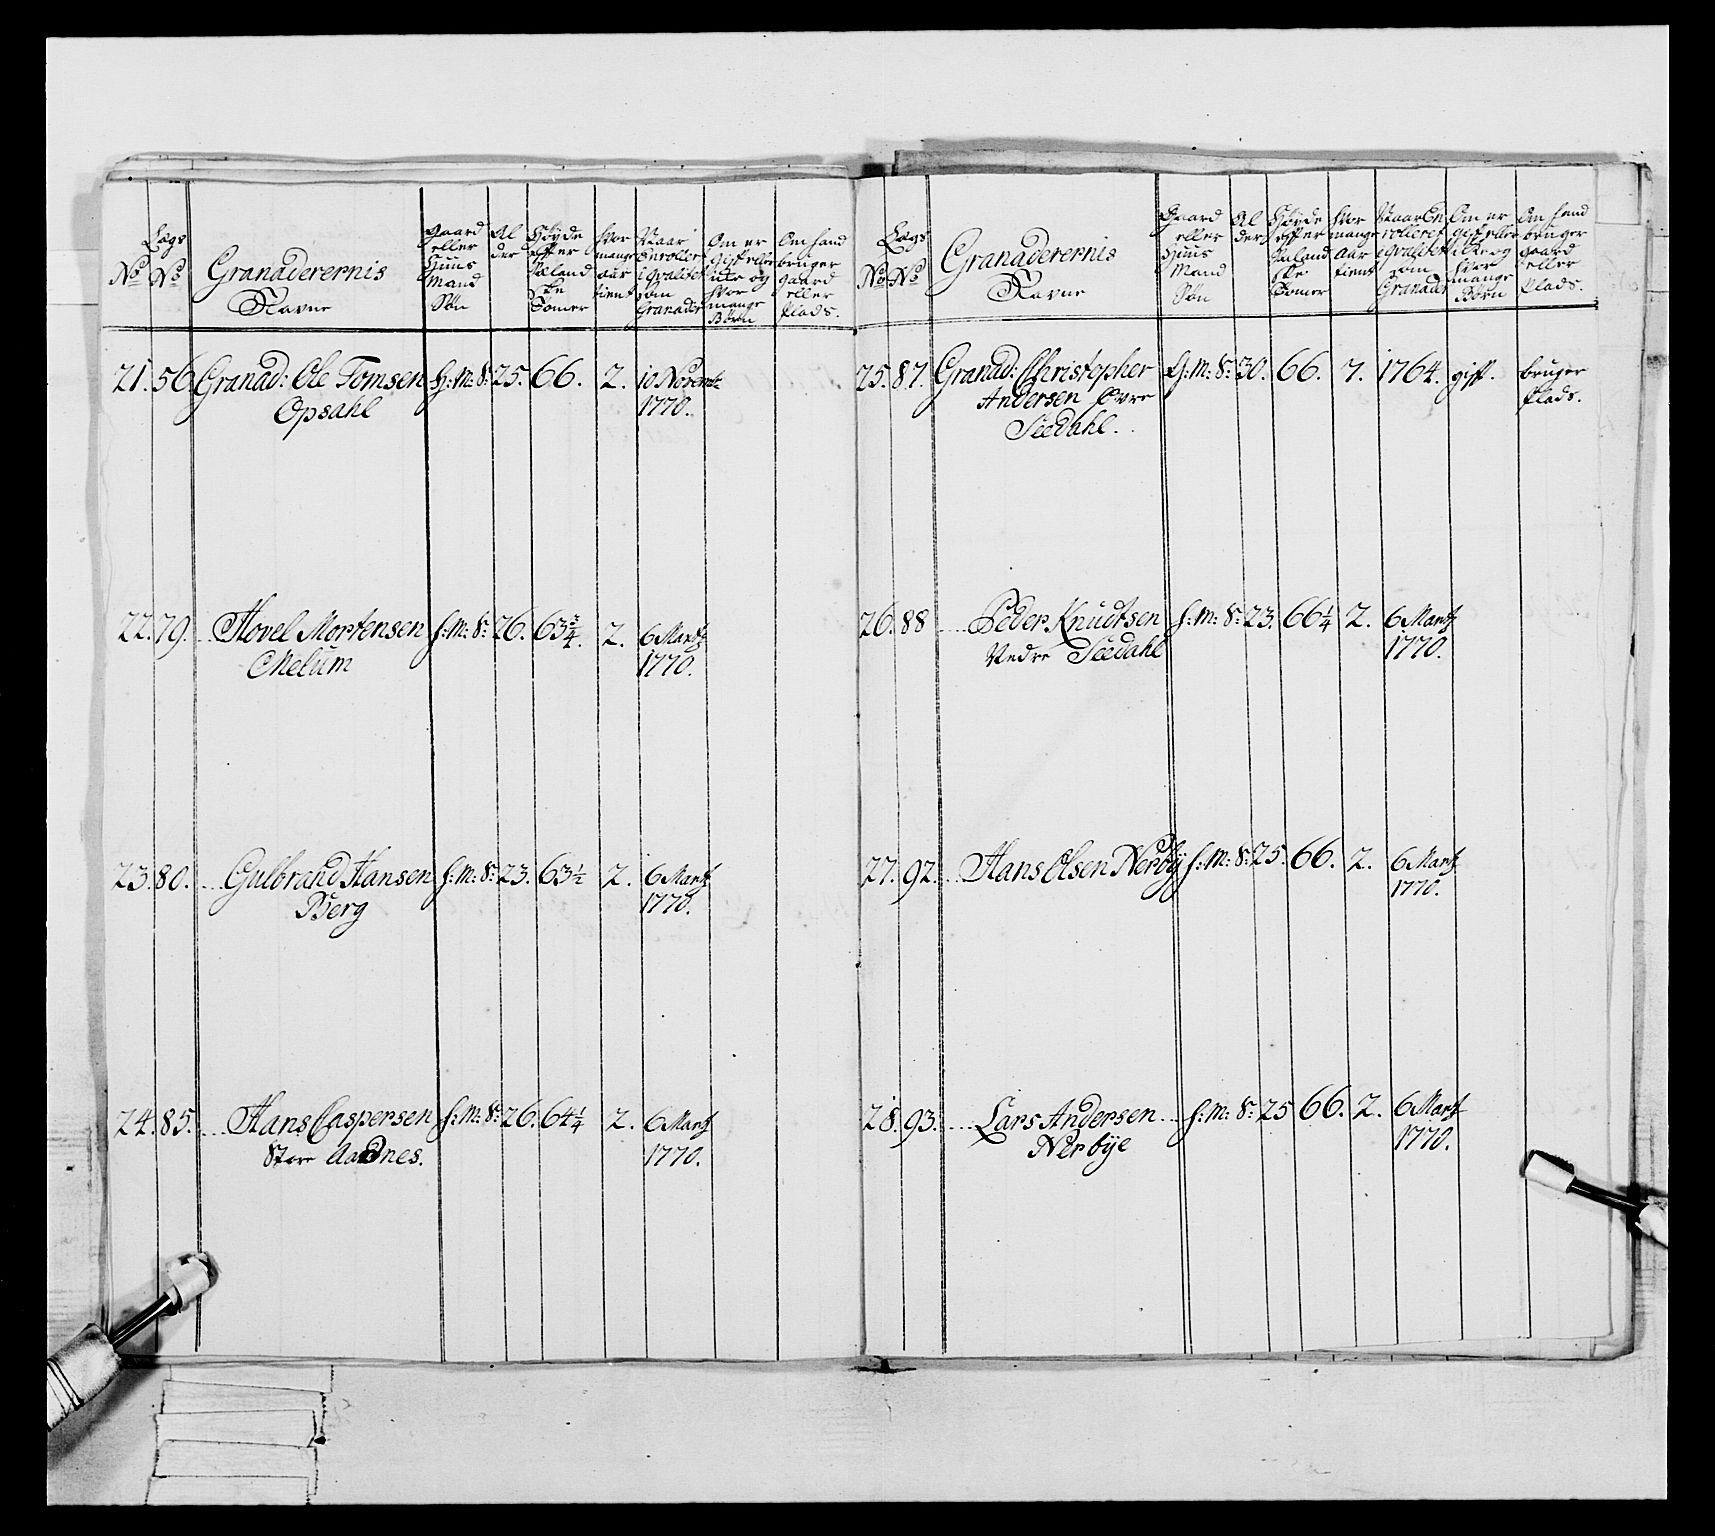 No
Lægs No
Granaderernis Navne
Gaard eller Huus Mand Søn
Al der
Høyde effter Siæland ske Tomer
hvor mange aar tient
Naar Enrolleret i qvalitet som Granader
Om er gift eller icke og hvor mange Børn
Om hand bruger gaard eller Plads.
21. 56 Granad: Ole Tomsen G: M: S: 25. 66. 2. 10 Novembr
Opsahl 1770.
22. 79. Hovel Mortensen H: M: S: 26. 63 3/4. 2. 6 Martz
Melum 1770.
23. 80. Gulbrand Hansen H: M: S: 23. 63 1/2 2. 6 Martz
Berg 1770.
24. 85. Hans Caspersen H: M: S: 26. 64 1/4 2. 6 Martz
Store Aadnes. 1770.
No
Lægs No
Granaderernis Navne
Gaard eller Huus Mand Søn
Al der
Høyde effter Siæland ske Tomer
hvor mange Aar tient
Naar Enrolleret i qvalitet som Granader
Om er gift eller icke og hvor mange Børn
Om hand bruger gaard eller Plads.
25. 87. Granad: Christopher G: M: S: 30. 66. 7. 1764. gift. bruger
Andersen Øvre Plads.
Seedahl.
26. 88 Peder Knudtsen H: M: S: 23. 66 1/4 2. 6 Martz
Nedre Seedahl 1770.
27. 92. Hans Olsen Nerby H: M: S: 25. 66. 2. 6 Martz
1770.
28. 93. Lars Andersen H: M: S: 25 66. 2. 6 Martz
Nerbye 1770.